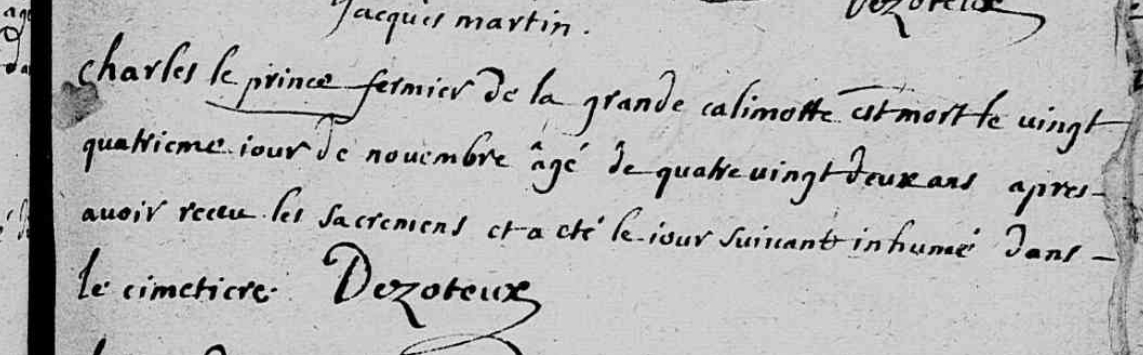 Jacques martin. Dezoteux
charles le prince fermier de la grande calimotte est mort le vingt
quatrieme iour de novembre âgé de quatrevingt deux ans apres-
avoir receu les sacremens et a eté le iour suivant inhumé dans-
le cimetiere. Dezoteux